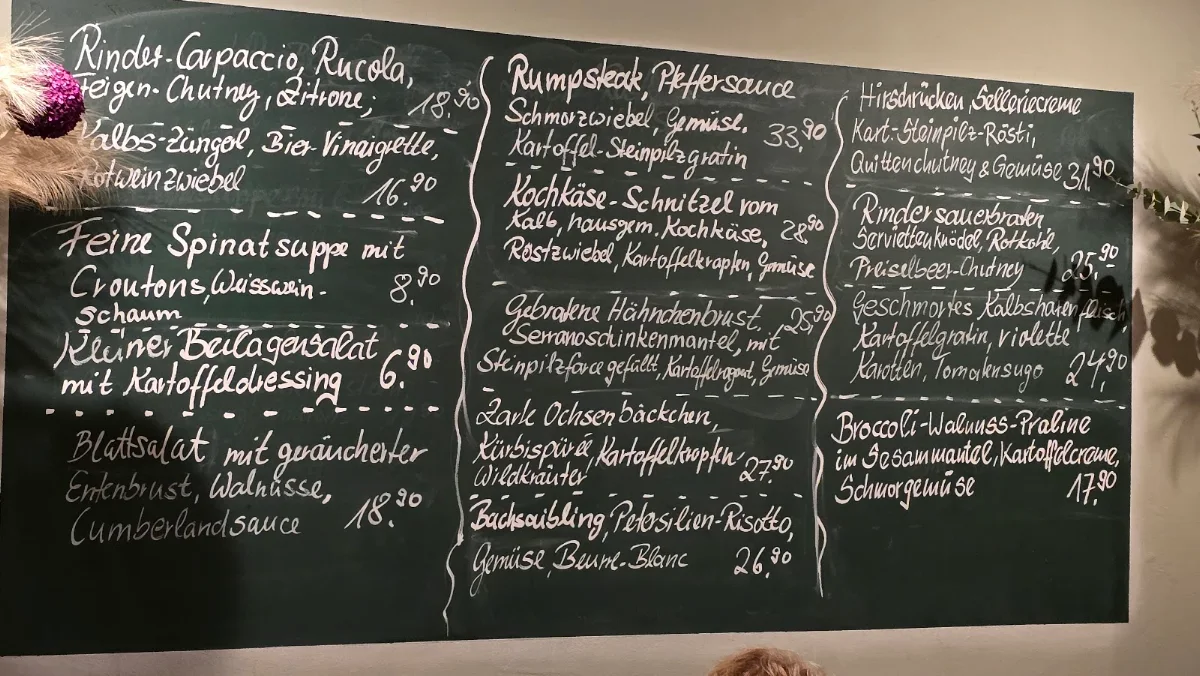 Rinder-Carpaccio, Rucola,
Feigen-Chutney, Zitrone, 18.90
Kalbs-Züngerl, Bier-Vinaigrette,
Rotweinzwiebel 16.90
Feine Spinatsuppe mit
Croutons, Weisswein- 8.90
schaum
Kleiner Beilagensalat
mit Kartoffeldressing 6.90
Blattsalat mit geräucherter
Entenbrust, Walnüsse,
Cumberlandsauce 18.90
Rumpsteak, Pfeffersauce
Schmorzwiebel, Gemüse, 33.90
Kartoffel-Steinpilzgratin
Kochkäse-Schnitzel vom
Kalb, hausgem. Kochkäse, 28.90
Röstzwiebel, Kartoffelkrapfen, Gemüse
Gebratene Hähnchenbrust 25.90
Serranoschinkenmantel, mit
Steinpilzfarce gefüllt, Kartoffelragout, Gemüse
Zarte Ochsenbäckchen,
Kürbispüree, Kartoffelkrapfen
Wildkräuter 27.90
Bachsaibling, Petersilien-Risotto,
Gemüse, Beurre-Blanc 26.90
Hirschrücken, Selleriecreme
Kart.-Steinpilz-Rösti,
Quittenchutney & Gemüse 31.90
Rindersauerbraten
Serviettenknödel, Rotkohl,
Preiselbeer-Chutney 25.90
Geschmortes Kalbshaxenfleisch,
Kartoffelgratin, violette
Karotten, Tomatensugo 24.90
Broccoli-Walnuss-Praline
im Sesammantel, Kartoffelcreme,
Schmorgemüse 17.90